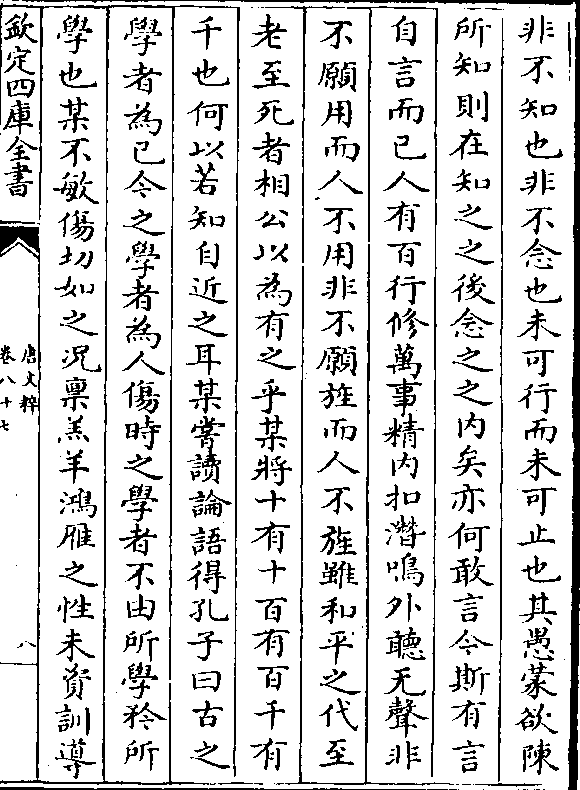 非不知也非不念也未可行而未可止也其愚蒙欲陳
所知則在知之之後念之之内矣亦何敢言今斯有言
自言而已人有百行修萬事精内扣潛鳴外聽无聲非
不願用而人不用非不願旌而人不旌雖和平之代至
老至死者相公以為有之乎某將十有十百有百千有
千也何以若知自近之耳某嘗讀論語得孔子曰古之
學者為已今之學者為人傷時之學者不由所學矜所
學也某不敏傷切如之况稟羔羊鴻雁之性未資訓導
欽定四庫全書
唐文粹
卷八十七
八